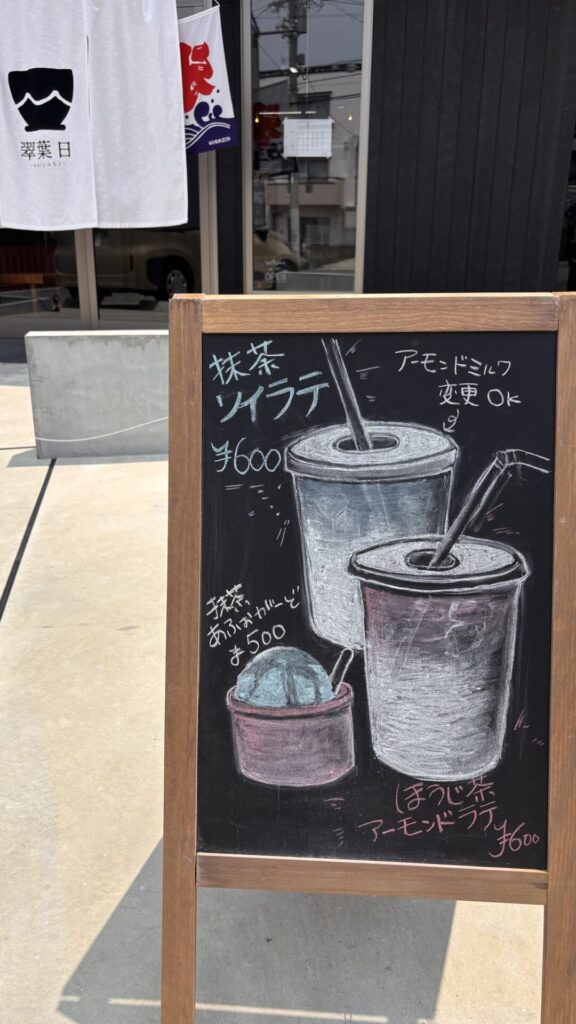 翠葉日
氷
OPEN
抹茶
ソイラテ
¥600
アーモンドミルク
変更 OK
抹茶
あふぉがーど
¥500
ほうじ茶
アーモンドラテ
¥600